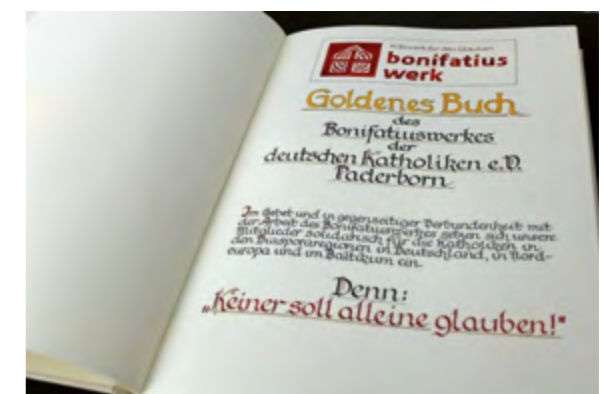 bonifatius
werk
Goldenes Buch
des
Bonifatiuswerkes
der
deutschen Katholiken e.V.
Paderborn
Im Gebet und in gegenseitiger Verbundenheit mit
der Arbeit des Bonifatiuswerkes setzen sich unsere
Mitglieder solidarisch für die Katholiken in
den Diasporaregionen in Deutschland, in Nord-
europa und im Baltikum ein.
Denn:
„Keiner soll alleine glauben!"